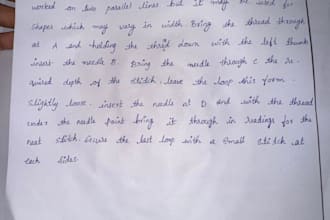 worked on two parallel lines but it may be used for
shapes which may vary in width. Bring the thread through
at A and holding the thread down with the left thumb
insert the needle B. Bring the needle through C the re-
quired depth of the stitch: leave the loop this form.
Slightly loose. insert the needle at D and with the thread
under the needle point bring it through in readings for the
next stitch. Secure the last loop with a small stitch at
each sides.